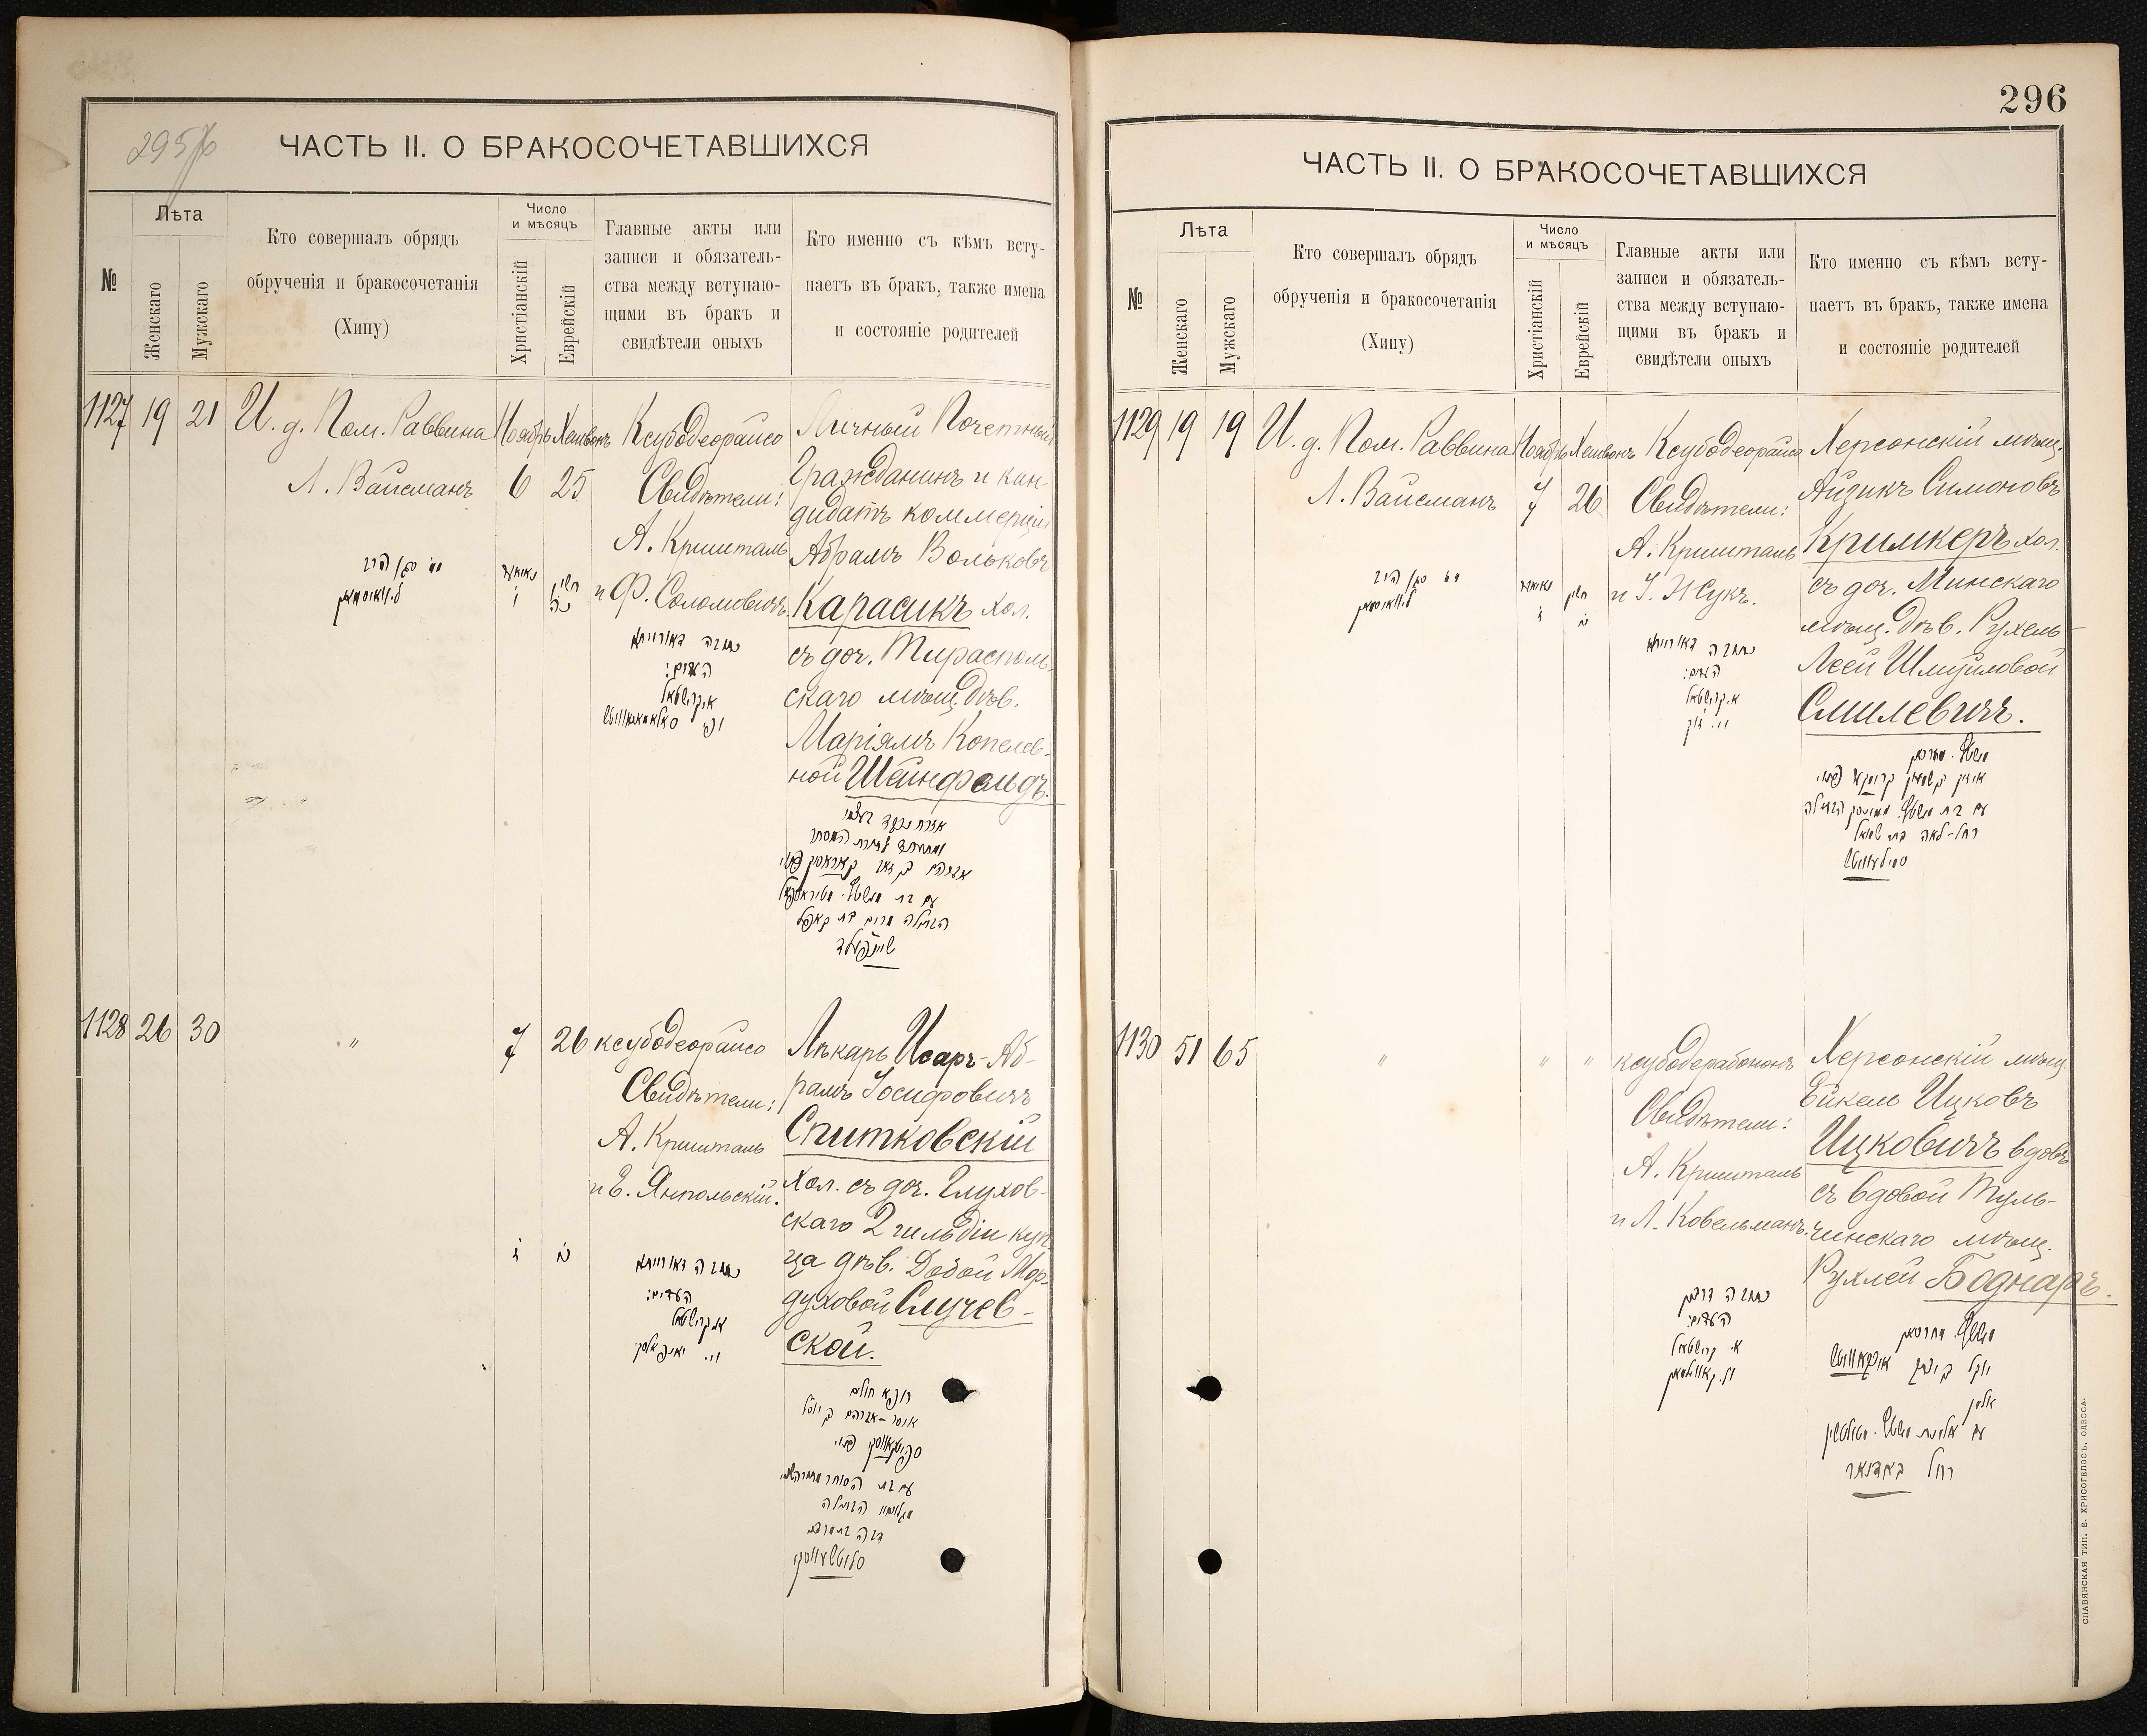 295 об
ЧАСТЬ II. О БРАКОСОЧЕТАВШИХСЯ
№
Лѣта
Женскаго
Мужскаго
Кто совершалъ обрядъ
обрученія и бракосочетанія
(Хипу)
Число
и мѣсяцъ
Христіанскій
Еврейскій
Главные акты или
записи и обязатель-
ства между вступаю-
щими въ бракъ и
свидѣтели оныхъ
Кто именно съ кѣмъ всту-
паетъ въ бракъ, также имена
и состояніе родителей
1127
19
21
И. д. Пом. Раввина
Л. Вайсманъ
Ноябрь
6
Хешвонъ
25
Ксубодеорайсо
Свидѣтели:
А. Кришталь
и Ф. Соломовичъ.
Личный Почетный
Гражданинъ и кан-
дидатъ коммерціи
Абрамъ Вольковъ
Карасикъ хол.
съ доч. Тирасполь-
скаго мѣщ. дѣв.
Маріямъ Копелев-
ной Шейнфельдъ.
כתובה דאורייתא
העדים:
א. קרישטאל
עם בת
הבתולה מרים בת קאפל
שיינפעלד
1128
26
30
"
7
26
ксубодеорайсо
Свидѣтели:
А. Кришталь
и Е. Ямпольскій.
Лѣкарь Исаръ-Аб-
рамъ Іосифовичъ
Спитковскій
Хол. съ доч. Глухов-
скаго 2 гильдіи куп-
ца дѣв. Добой Мор-
духовой Случев-
ской.
כתובה דאורייתא
העדים:
א. קרישטאל
רופא חולים
296
ЧАСТЬ II. О БРАКОСОЧЕТАВШИХСЯ
№
Лѣта
Женскаго
Мужскаго
Кто совершалъ обрядъ
обрученія и бракосочетанія
(Хипу)
Число
и мѣсяцъ
Христіанскій
Еврейскій
Главные акты или
записи и обязатель-
ства между вступаю-
щими въ бракъ и
свидѣтели оныхъ
Кто именно съ кѣмъ всту-
паетъ въ бракъ, также имена
и состояніе родителей
1129
19
19
И. д. Пом. Раввина
Л. Вайсманъ
Ноябрь
7
Хешвонъ
26
Ксубодеорайсо
Свидѣтели:
А. Кришталь
и І. Жукъ.
Херсонскій мѣщ.
Айзикъ Симоновъ
Кримкеръ хол.
съ доч. Минскаго
мѣщ. дѣв. Рухель-
Леей Шмуйловой
Смилевичъ.
כתובה דאורייתא
העדים:
א. קרישטאל
רחל-לאה בת שמואל
סמילעוויטש
1130
51
65
"
"
"
ксубодерабононъ
Свидѣтели:
А. Кришталь
и Л. Ковельманъ.
Херсонскій мѣщ.
Ейкель Ицковъ
Ицковичъ вдовъ
съ вдовой Туль-
чинскаго мѣщ.
Рухлей Боднаръ.
כתובה דרבנן
העדים:
א. קרישטאל
אלמן
רחל באדנאר
СЛАВЯНСКАЯ ТИП. Е. ХРИСОГЕЛОСЪ, ОДЕССА.